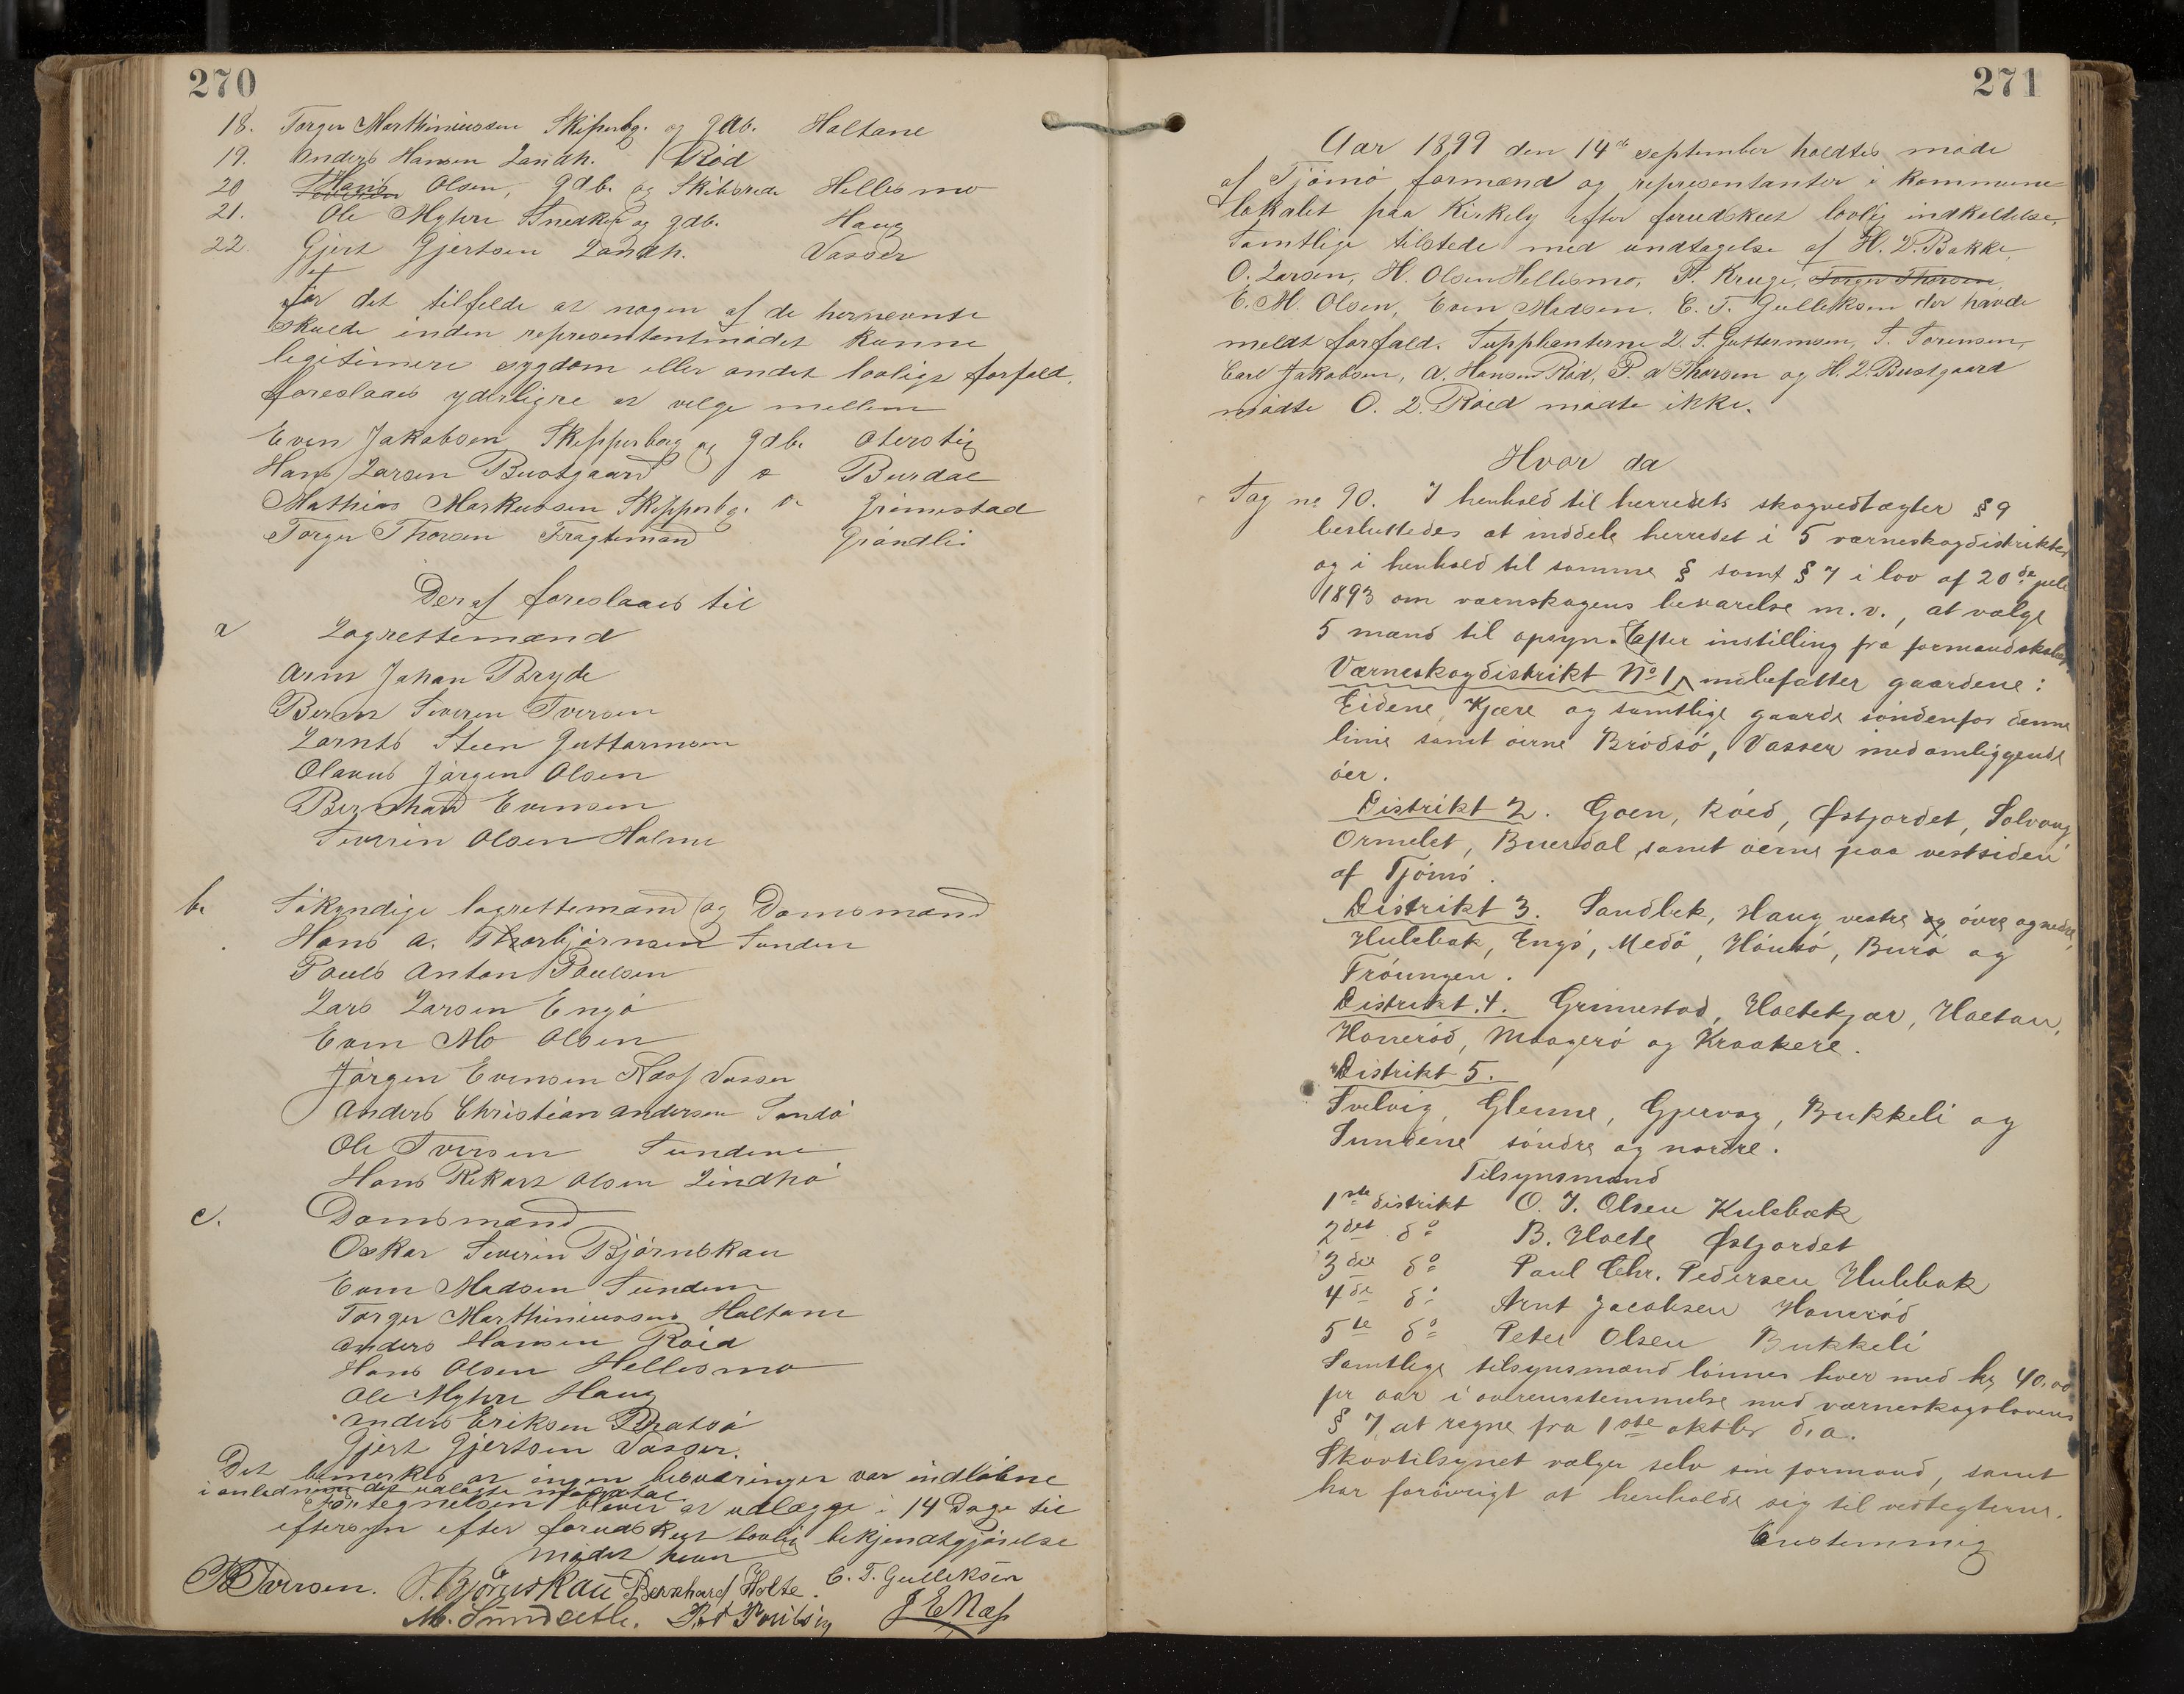 270
18. Torger Marthiniussen Skipperbg. og gdb. Holtane
19. Anders Hansen Landh. Röd
20 Hans Olsen, gdb. og Skibsrede Hellesmo
21. Ole Myhre Snedker og gdb. Haug
22. Gjert Gjertsen Landh. Vasser
For det tilfelde at nogen af de hernevnte
skulde inden representantmödet kunne
legitimere sygdom eller andet lovligt forfald,
foreslaaes yderligre at velge mellem
Even Jakobsen Skipperborg og gdb. Oterstig
Hans Larsen Bustgaard " Burdal
Mathias Markussen Skipperbg. " Grimestad
Torger Thorsen Fragtemand Gröndli
Deraf foreslaaes til
a Lagrettemænd
Arnt Johan Bryde
Bernt Severin Iversen
Lornts Steen Guttormsen
Olavus Jörgen Olsen
Bernhard Evensen
Severin Olsen Holme
b. Sökyndige lagrettemænd og Domsmænd
Hans A. Thorbjörnsen Sunden
Pauls Anton Paulsen
Lars Larsen Engö
Even Mo Olsen
Jörgen Evensen Næss Vasser
Anders Christian Andersen Sandö
Ole Iversen Sundene
Hans Rikart Olsen Lindhö
c. Domsmænd
Oskar Severin Björnskau
Even Madsen Sunden
Torger Marthiniussen Holtane
Anders Hansen Röed
Hans Olsen Hellesmo
Ole Myhre Haug
Anders Eriksen Bratsö
Gjert Gjertsen Vasser.
Det bemerkes at ingen besværinger var indlöbne
i anledning det udlagte mantal.
Fortegnelsen bliver at udlægge i 14 Dage til
eftersyn efter forudskeet lovlig bekjendtgjörelse
mödet hevet
B Iversen. O. Björnskau Bernhard Holte. C. T. Gulliksen
M. Sundeth. J E Næss
271
Aar 1899 den 14de september holdtes möde
af Tjömö formænd og representanter i kommune
lokalet paa Kirkely efter forudskeet lovlig indkaldelse.
Samtlige tilstede med undtagelse af H. L. Bakke
O. Larsen, H. Olsen Hellesmo, P. Kruge, Torger Thorsen,
E. M. Olsen, Even Madsen. C. T. Gulliksen der havde
meldt forfald. Supplianterne L. S. Guttormsen, S. Sörensen,
Carl Jakobsen, A. Hansen Röd, P. A Thorsen og H. L. Bustgaard
mödte O. L. Röed mödte ikke.
Hvor da
Sag no 90. I henhold til herredets skogvedtægter § 9
besluttedes at inddele herredet i 5 værneskogdistrikter
og i henhold til samme § samt § 7 i lov af 20de juli
1893 om værnskogens bevarelse m.v., at vælge
5 mænd til opsyn. Efter instilling fra formandskabet
Værneskogdistrikt No 1, indbefatter gaardene:
Eidene, Kjære og samtlige gaarde söndenfor denne
linie samt öerne Brödsö, Vasser med omliggende
öer.
Distrikt 2. Goen, Röed, Østjordet, Solvang
Ormelet, Buerdal samt öerne paa vestsiden
af Tjömö.
Distrikt 3. Sandbek, Haug vestre og övre og nedre,
Hulebak, Engö, Medö, Hönsö, Burö og
Fröungen.
Distrikt 4. Grimestad, Holtekjær, Holtan,
Honeröd, Maagerö og Kraakere.
Distrikt 5.
Svelvig, Glenne, Gjervaag, Bukkeli og
Sundene söndre og nordre.
Tilsynsmænd
1ste distrikt O. J. Olsen Kulebæk
2det do B. Holte Østjordet
3die do Paul Chr. Pedersen Hulebak
4de do Arnt Jacobsen Honeröd
5te do Peter Olsen Bukkeli
Samtlige tilsynsmænd lönnes hver med kr 40,00
pr aar i overensstemmelse med værneskogslovens
§ 7, at regne fra 1ste oktbr d.a.
Skovtilsynet vælger selv sin formand, samt
har forövrigt at henholde sig til vedtegterne.
Enstemmig